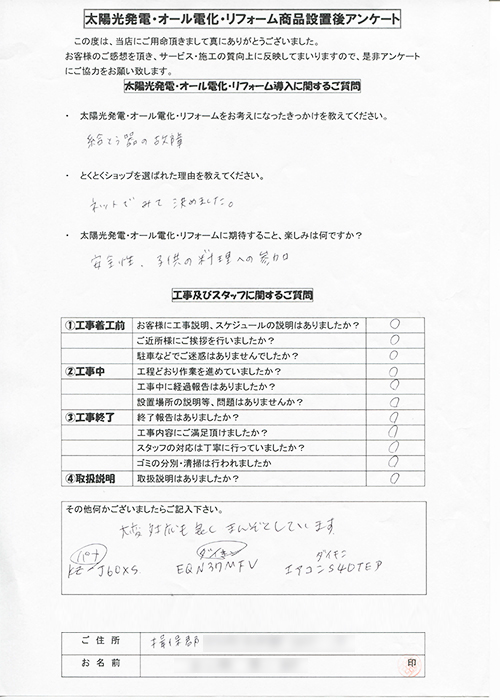 太陽光発電・オール電化・リフォーム商品設置後アンケート
この度は、当店にご用命頂きまして真にありがとうございました。
お客様のご感想を頂き、サービス・施工の質向上に反映してまいりますので、是非アンケート
にご協力をお願い致します。
太陽光発電・オール電化・リフォーム導入に関するご質問
・ 太陽光発電・オール電化・リフォームをお考えになったきっかけを教えてください。
給とう器の故障
・ とくとくショップを選ばれた理由を教えてください。
ネットでみて決めました。
・ 太陽光発電・オール電化・リフォームに期待すること、楽しみは何ですか？
安全性、子供の料理への参加
工事及びスタッフに関するご質問
①工事着工前 お客様に工事説明、スケジュールの説明はありましたか？ ○
ご近所様にご挨拶を行いましたか？ ○
駐車などでご迷惑はありませんでしたか？ ○
②工事中 工程どおり作業を進めていましたか？ ○
工事中に経過報告はありましたか？ ○
設置場所の説明等、問題はありませんか？ ○
③工事終了 終了報告はありましたか？ ○
工事内容にご満足頂けましたか？ ○
スタッフの対応は丁寧に行っていましたか？ ○
ゴミの分別・清掃は行われましたか ○
④取扱説明 取扱説明はありましたか？ ○
その他何かございましたらご記入下さい。
対応も良くまんぞくしています
パナ ダイキン ダイキン
KZ-J60XS EQN37MFV エアコンS40TEP
ご住所 揖保郡
お名前 印